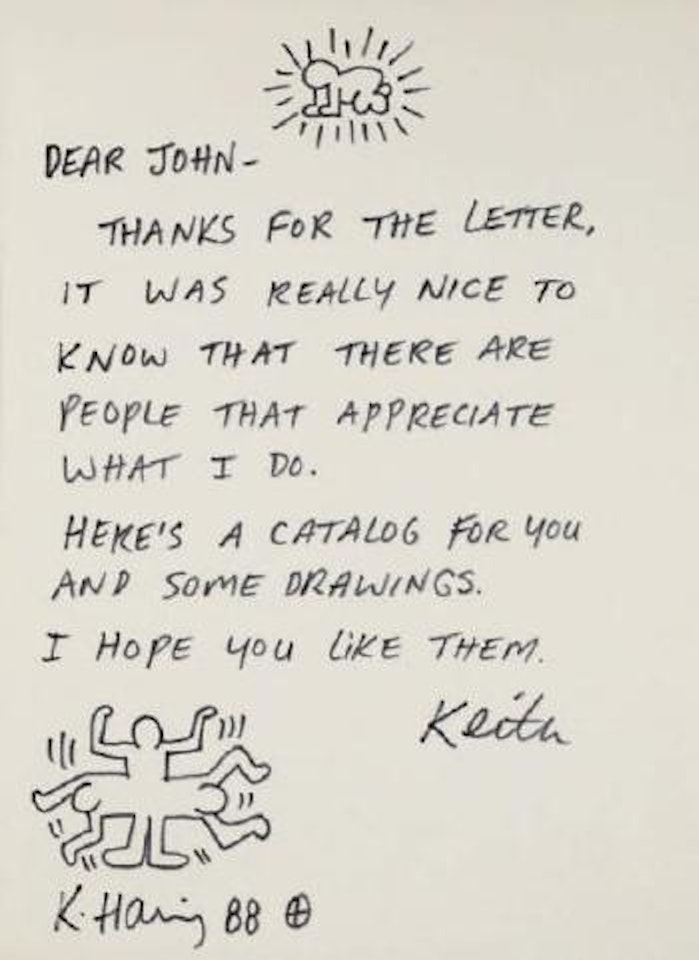 DEAR JOHN-
THANKS FOR THE LETTER,
IT WAS REALLY NICE TO
KNOW THAT THERE ARE
PEOPLE THAT APPRECIATE
WHAT I DO.
HERE'S A CATALOG FOR YOU
AND SOME DRAWINGS.
I HOPE YOU LiKE THEM.
Keith
K. Haring 88 ⊕